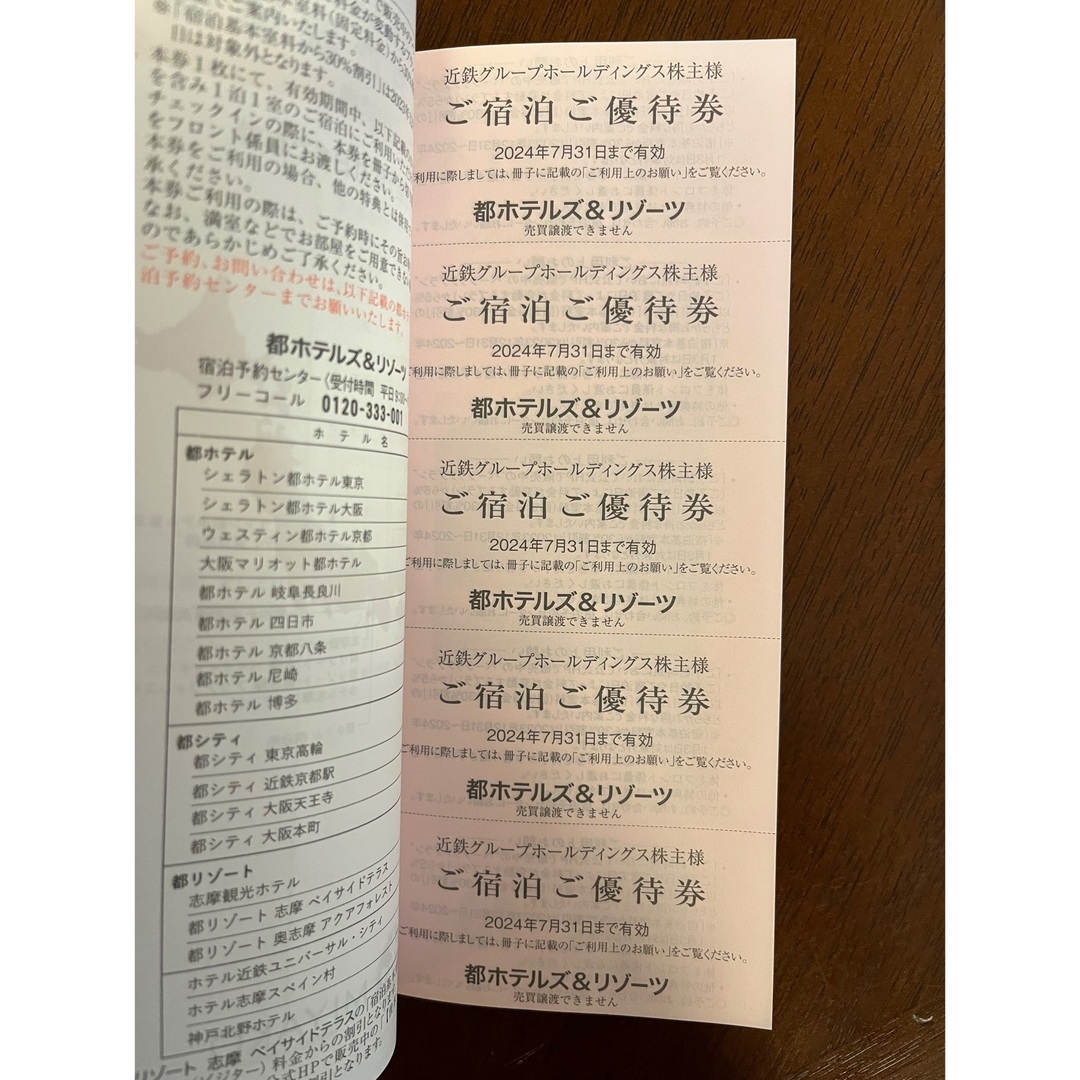 料金が変動するプ
室料(固定料金)から
でご案内いたします。
※「宿泊基本室料から30%割引」は2023年
日は対象外となります。
本券1枚にて、有効期間中、以下記載の
を含み1泊1室のご宿泊にご利用いただ
チェックインの際に、本券を冊子から
をフロント係員にお渡しください。
本券をご利用の場合、他の特典とは併用
承ください。
本券ご利用の際は、ご予約時にその旨お
なお、満室などでお部屋をご用意できな
のであらかじめご了承ください。
ご予約、お問い合わせは、以下記載の都ホテ
泊予約センターまでお願いいたします。
都ホテルズ&リゾーツ
宿泊予約センター(受付時間 平日9:30~
フリーコール 0120-333-001
ホテル名
都ホテル
シェラトン都ホテル東京
シェラトン都ホテル大阪
ウェスティン都ホテル京都
大阪マリオット都ホテル
都ホテル 岐阜長良川
都ホテル 四日市
都ホテル 京都八条
都ホテル 尼崎
都ホテル 博多
都シティ
都シティ 東京高輪
都シティ 近鉄京都駅
都シティ 大阪天王寺
都シティ 大阪本町
都リゾート
志摩観光ホテル
都リゾート 志摩 ベイサイドテラス
都リゾート 奥志摩 アクアフォレスト
ホテル近鉄ユニバーサル・シティ
ホテル志摩スペイン村
神戸北野ホテル
リゾート 志摩 ベイサイドテラスの「宿泊基本
ジター)料金からの割引となります
公式HPで販売中の
割引となります。
近鉄グループホールディングス株主様
ご宿泊ご優待券
2024年7月31日まで有効
利用に際しましては、冊子に記載の「ご利用上のお願い」をご覧ください。
都ホテルズ&リゾーツ
売買譲渡できません
近鉄グループホールディングス株主様
ご宿泊ご優待券
2024年7月31日まで有効
ご利用に際しましては、冊子に記載の「ご利用上のお願い」をご覧ください。
都ホテルズ&リゾーツ
売買譲渡できません
近鉄グループホールディングス株主様
ご宿泊ご優待券
2024年7月31日まで有効
ご利用に際しましては、冊子に記載の「ご利用上のお願い」をご覧ください。
都ホテルズ&リゾーツ
売買譲渡できません
近鉄グループホールディングス株主様
ご宿泊ご優待券
2024年7月31日まで有効
ご利用に際しましては、冊子に記載の「ご利用上のお願い」をご覧ください。
都ホテルズ&リゾーツ
売買譲渡できません
近鉄グループホールディングス株主様
ご宿泊ご優待券
2024年7月31日まで有効
ご利用に際しましては、冊子に記載の「ご利用上のお願い」をご覧ください。
都ホテルズ&リゾーツ
売買譲渡できません